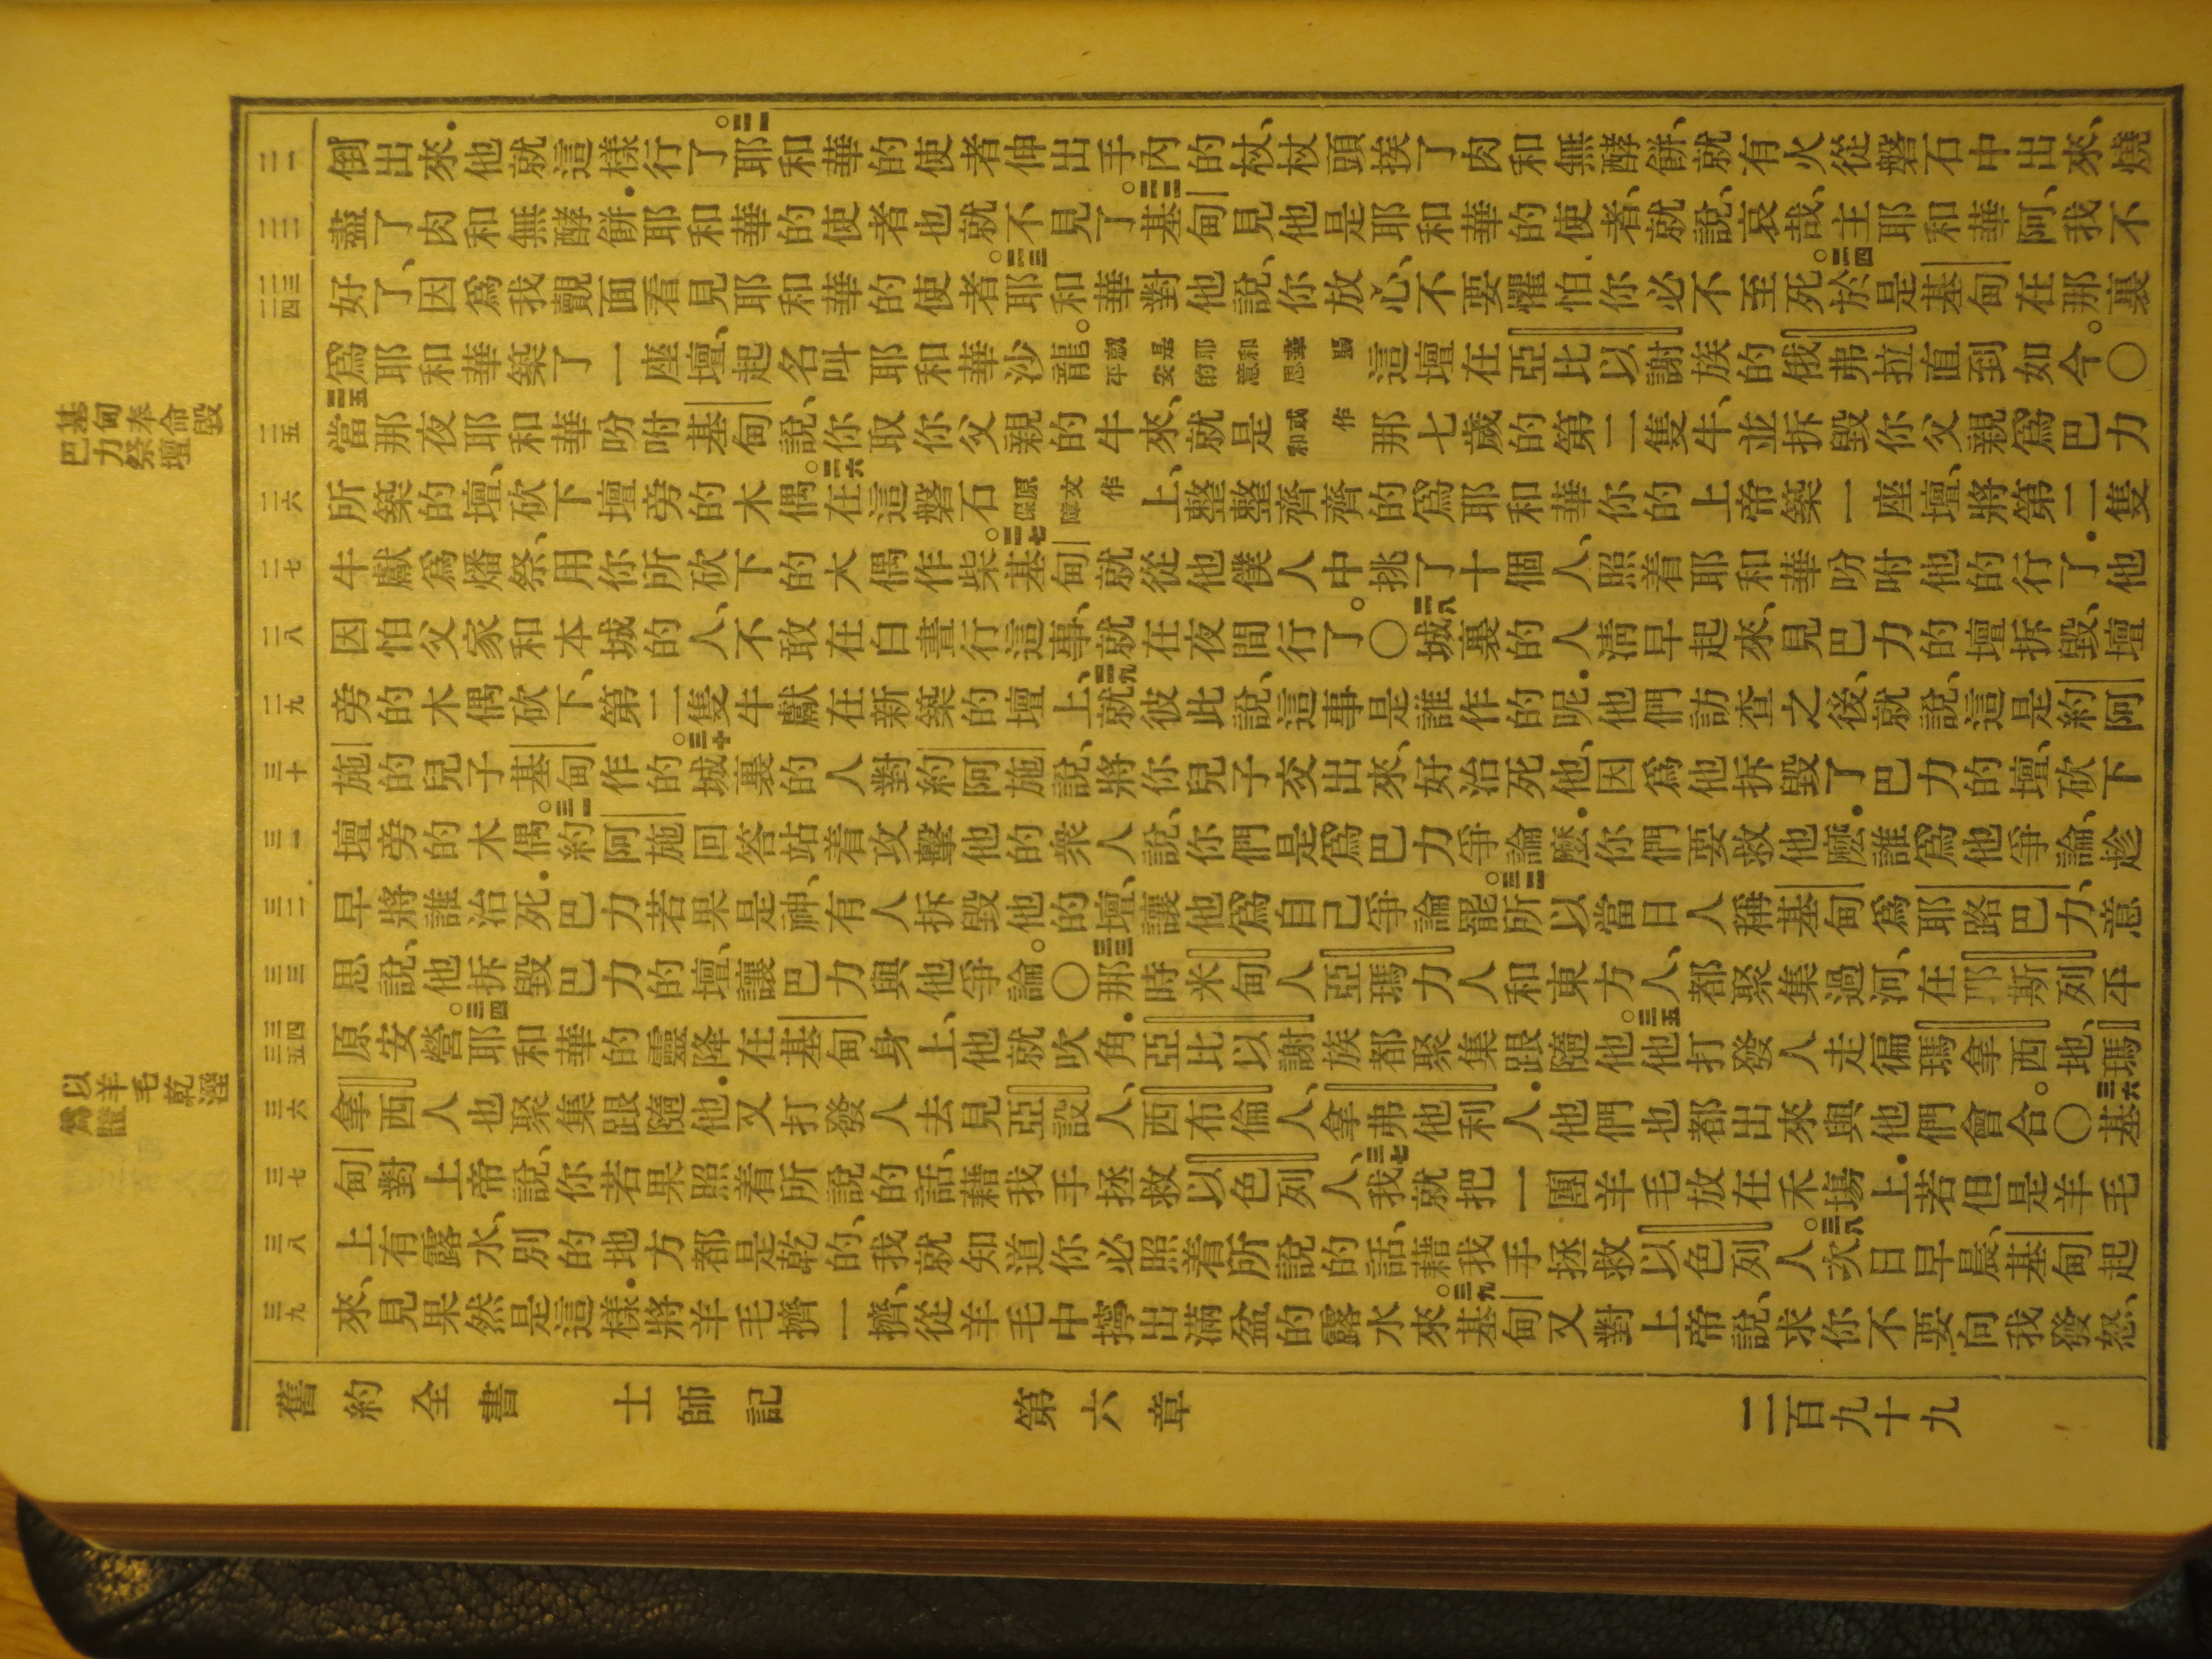 基甸奉命毀
巴力祭壇
以羊毛乾溼
為證
二一
倒出來．他就這樣行了。二一耶和華的使者伸出手內的杖、杖頭挨了肉和無酵餅、就有火從磐石中出來、燒
二二
盡了肉和無酵餅．耶和華的使者也就不見了。二二基甸見他是耶和華的使者、就說、哀哉、主耶和華阿、我不
二三 二四
好了、因爲我覿面看見耶和華的使者。二三耶和華對他說、你放心、不要懼怕．你必不至死。二四於是基甸在那裏
爲耶和華築了一座壇、起名叫耶和華沙龍。就是耶和華賜平安的意思這壇在亞比以謝族的俄弗拉直到如今。〇
二五
二五當那夜耶和華吩咐基甸說、你取你父親的牛來、就是或作和那七歲的第二隻牛、並拆毀你父親爲巴力
二六
所築的壇、砍下壇旁的木偶。二六在這磐石原文作保障上、整整齊齊的爲耶和華你的上帝築一座壇、將第二隻
二七
牛獻爲燔祭、用你所砍下的木偶作柴。二七基甸就從他僕人中挑了十個人、照着耶和華吩咐他的行了．他
二八
因怕父家和本城的人、不敢在白晝行這事、就在夜間行了。〇二八城裏的人清早起來、見巴力的壇拆毀、壇
二九
旁的木偶砍下、第二隻牛獻在新築的壇上、二九就彼此說、這事是誰作的呢．他們訪查之後、就說、這是約阿
三十
施的兒子基甸作的。三十城裏的人對約阿施說、將你兒子交出來、好治死他、因爲他拆毀了巴力的壇、砍下
三一
壇旁的木偶。三一約阿施回答站着攻擊他的衆人說、你們是爲巴力爭論麽．你們要救他麽．誰爲他爭論、趁
三二
早將誰治死．巴力若果是神、有人拆毀他的壇、讓他爲自己爭論罷。三二所以當日人稱基甸爲耶路巴力、意
三三
思說、他拆毀巴力的壇、讓巴力與他爭論。〇三三那時米甸人亞瑪力人和東方人、都聚集過河、在耶斯列平
三四 三五
原安營。三四耶和華的靈降在基甸身上、他就吹角．亞比以謝族都聚集跟隨他。三五他打發人走徧瑪拿西地、瑪
三六
拿西人也聚集跟隨他．又打發人去見亞設人、西布倫人、拿弗他利人．他們也都出來與他們會合。〇三六基
三七
甸對上帝說、你若果照着所說的話、藉我手拯救以色列人、三七我就把一團羊毛放在禾場上．若但是羊毛
三八
上有露水、別的地方都是乾的、我就知道你必照着所說的話、藉我手拯救以色列人。三八次日早晨、基甸起
三九
來、見果然是這樣．將羊毛擠一擠、從羊毛中擰出滿盆的露水來。三九基甸又對上帝說、求你不要向我發怒、
舊約全書 士師記 第六章 二百九十九